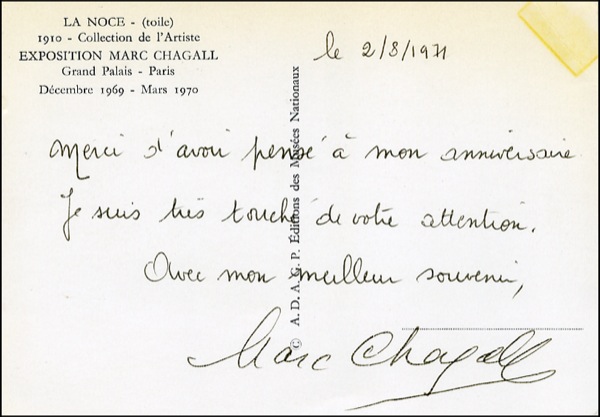 LA NOCE - (toile)
1910 - Collection de l'Artiste
EXPOSITION MARC CHAGALL
Grand Palais - Paris
Décembre 1969 - Mars 1970
le 2/8/1971
Merci d'avoir pensé à mon anniversaire
Je suis très touché de votre attention.
Avec mon meilleur souvenir,
Marc Chagall
© A.D.A.G.P. Éditions des Musées Nationaux